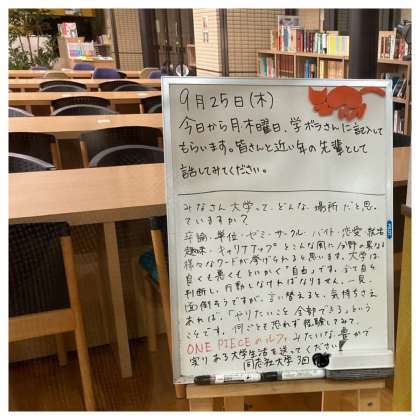 9月25日(木)
今日から月木曜日、学ボラさんに記入して
もらいます。皆さんと近い年の先輩として
話してみてください。
みなさん大学って、どんな場所だと思っ
ていますか?
卒論・単位・ゼミ・サークル・バイト・恋愛・就活
趣味・キャリアアップ とこんな風に分野の異なる
様々なワードが挙げられると思います。大学は
良くも悪くもとにかく「自由」です。全て自ら
判断し、行動しなければなりません。一見、
面倒そうですが、言い替えると、気持ちさえ
あれば、「やりたいこと全部できる」という
ことです。何ごとも恐れず経験してみて、
ONE PIECEのルフィみたいな豊かで
実りある大学生活を送ってください!
同志社大学 3回